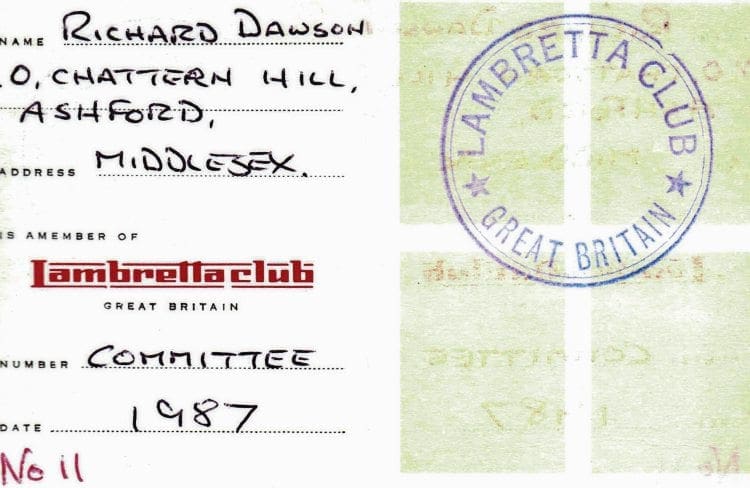 NAME RICHARD DAWSON
0, CHATTERN HILL,
ASHFORD,
ADDRESS MIDDLESEX.
IS AMEMBER OF
Lambretta club
GREAT BRITAIN
NUMBER COMMITTEE
DATE 1987
No 11
LAMBRETTA CLUB
GREAT BRITAIN